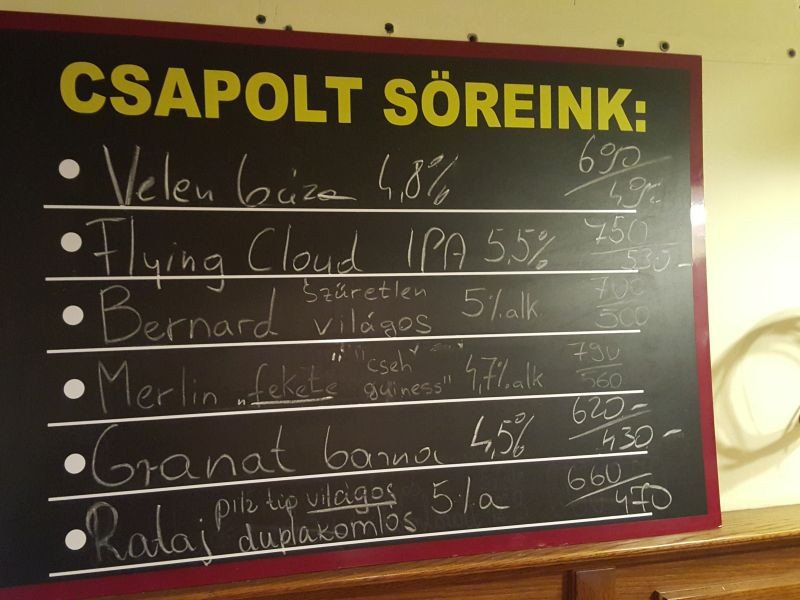 CSAPOLT SÖREINK:
Velen búza 4,8% 690 / 490-
Flying Cloud IPA 5,5% 750 / 530-
Bernard szűretlen világos 5% alk 700 / 500
Merlin „fekete cseh guiness" 4,7% alk 790 / 560
Granat barna 4,5% 620- / 430-
Rataj pilz tip világos duplakomlós 5% a 660 / 470